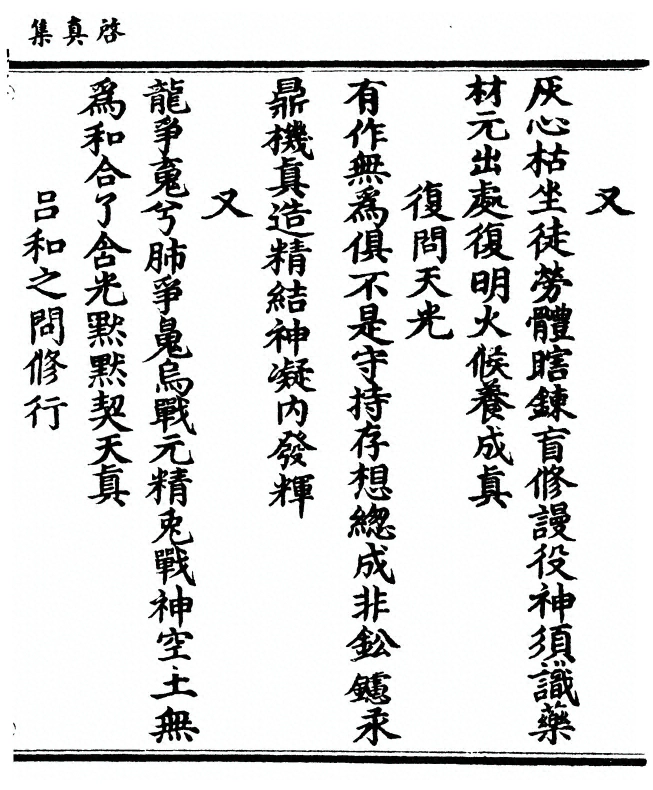 啓真集
又
灰心枯坐徒勞體瞎鍊盲修謾役神須識藥
材元出處復明火候養成真
復問天光
有作無爲俱不是守持存想緫成非鈆鑪汞
鼎機真造精結神凝內發輝
又
龍爭兮肺爭烏戰元精兎戰神空土無
爲和合了含光默默契天真
呂和之問修行